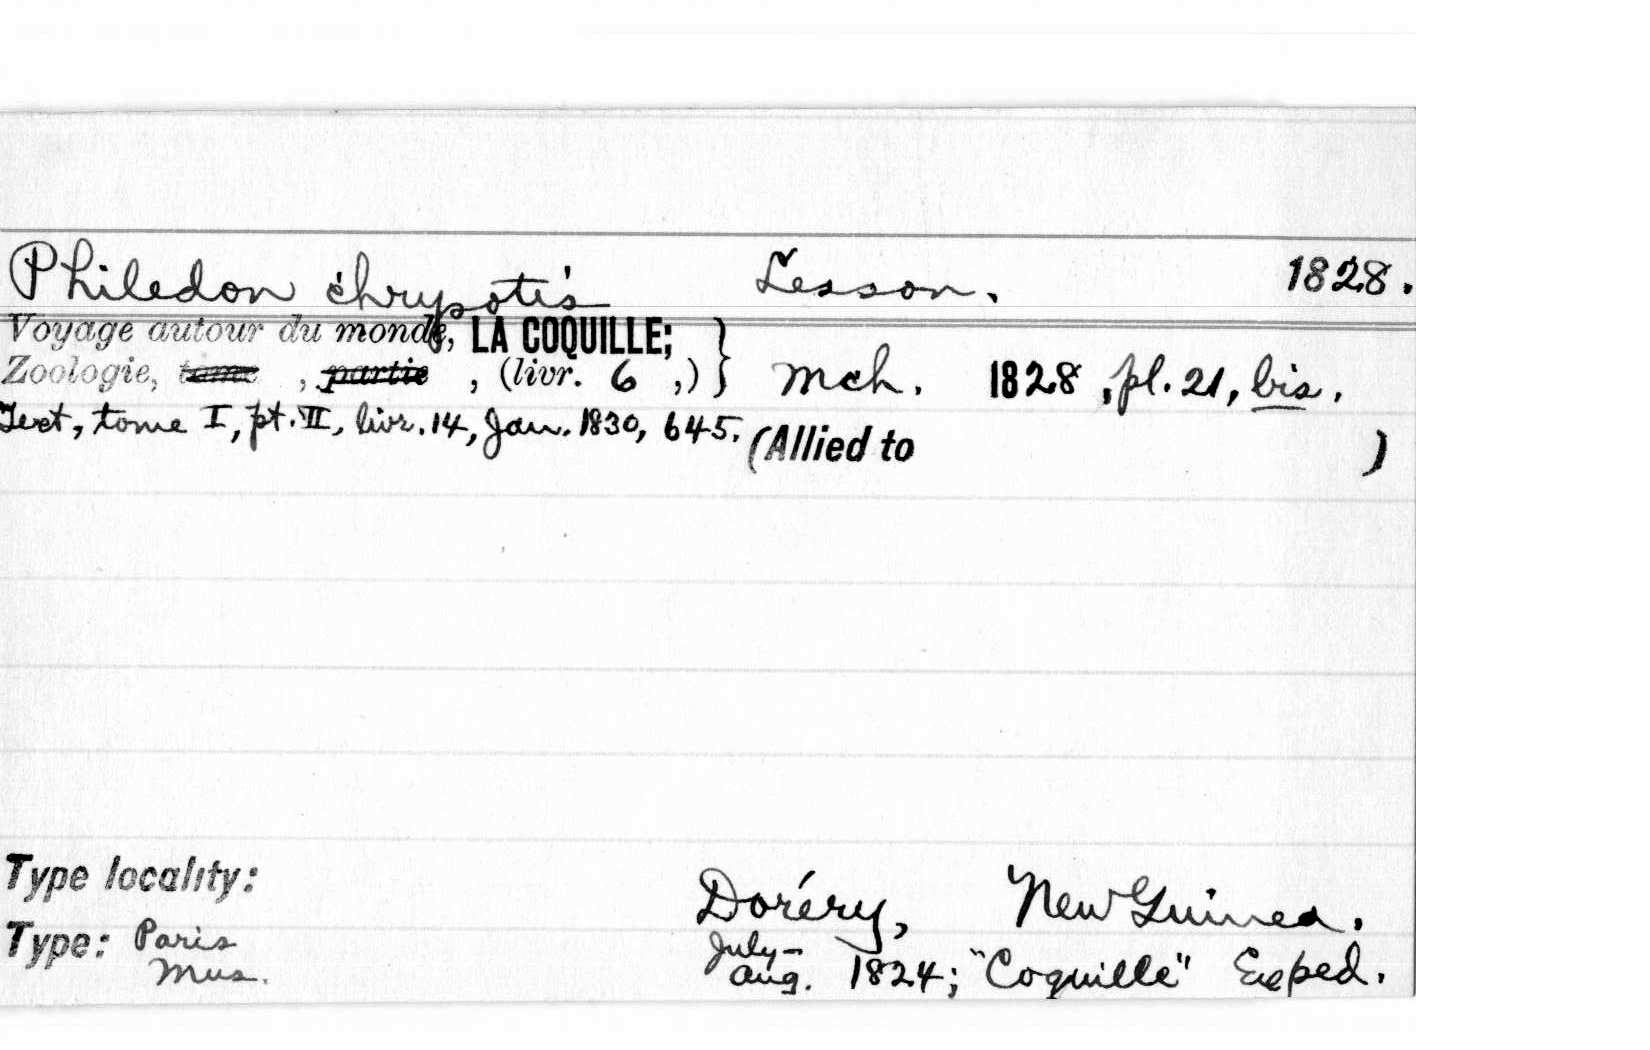 Philedon chrysotis Lesson. 1828.
Voyage autour du monde, LA COQUILLE; }
Zoologie, tome , partie , (livr. 6 ,) } Mch. 1828, pl. 21, bis.
Text, tome I, pt. II, livr. 14, Jan. 1830, 645. (Allied to )
Type locality: Doréry, New Guinea.
Type: Paris Mus. July-Aug. 1824; "Coquille" Exped.